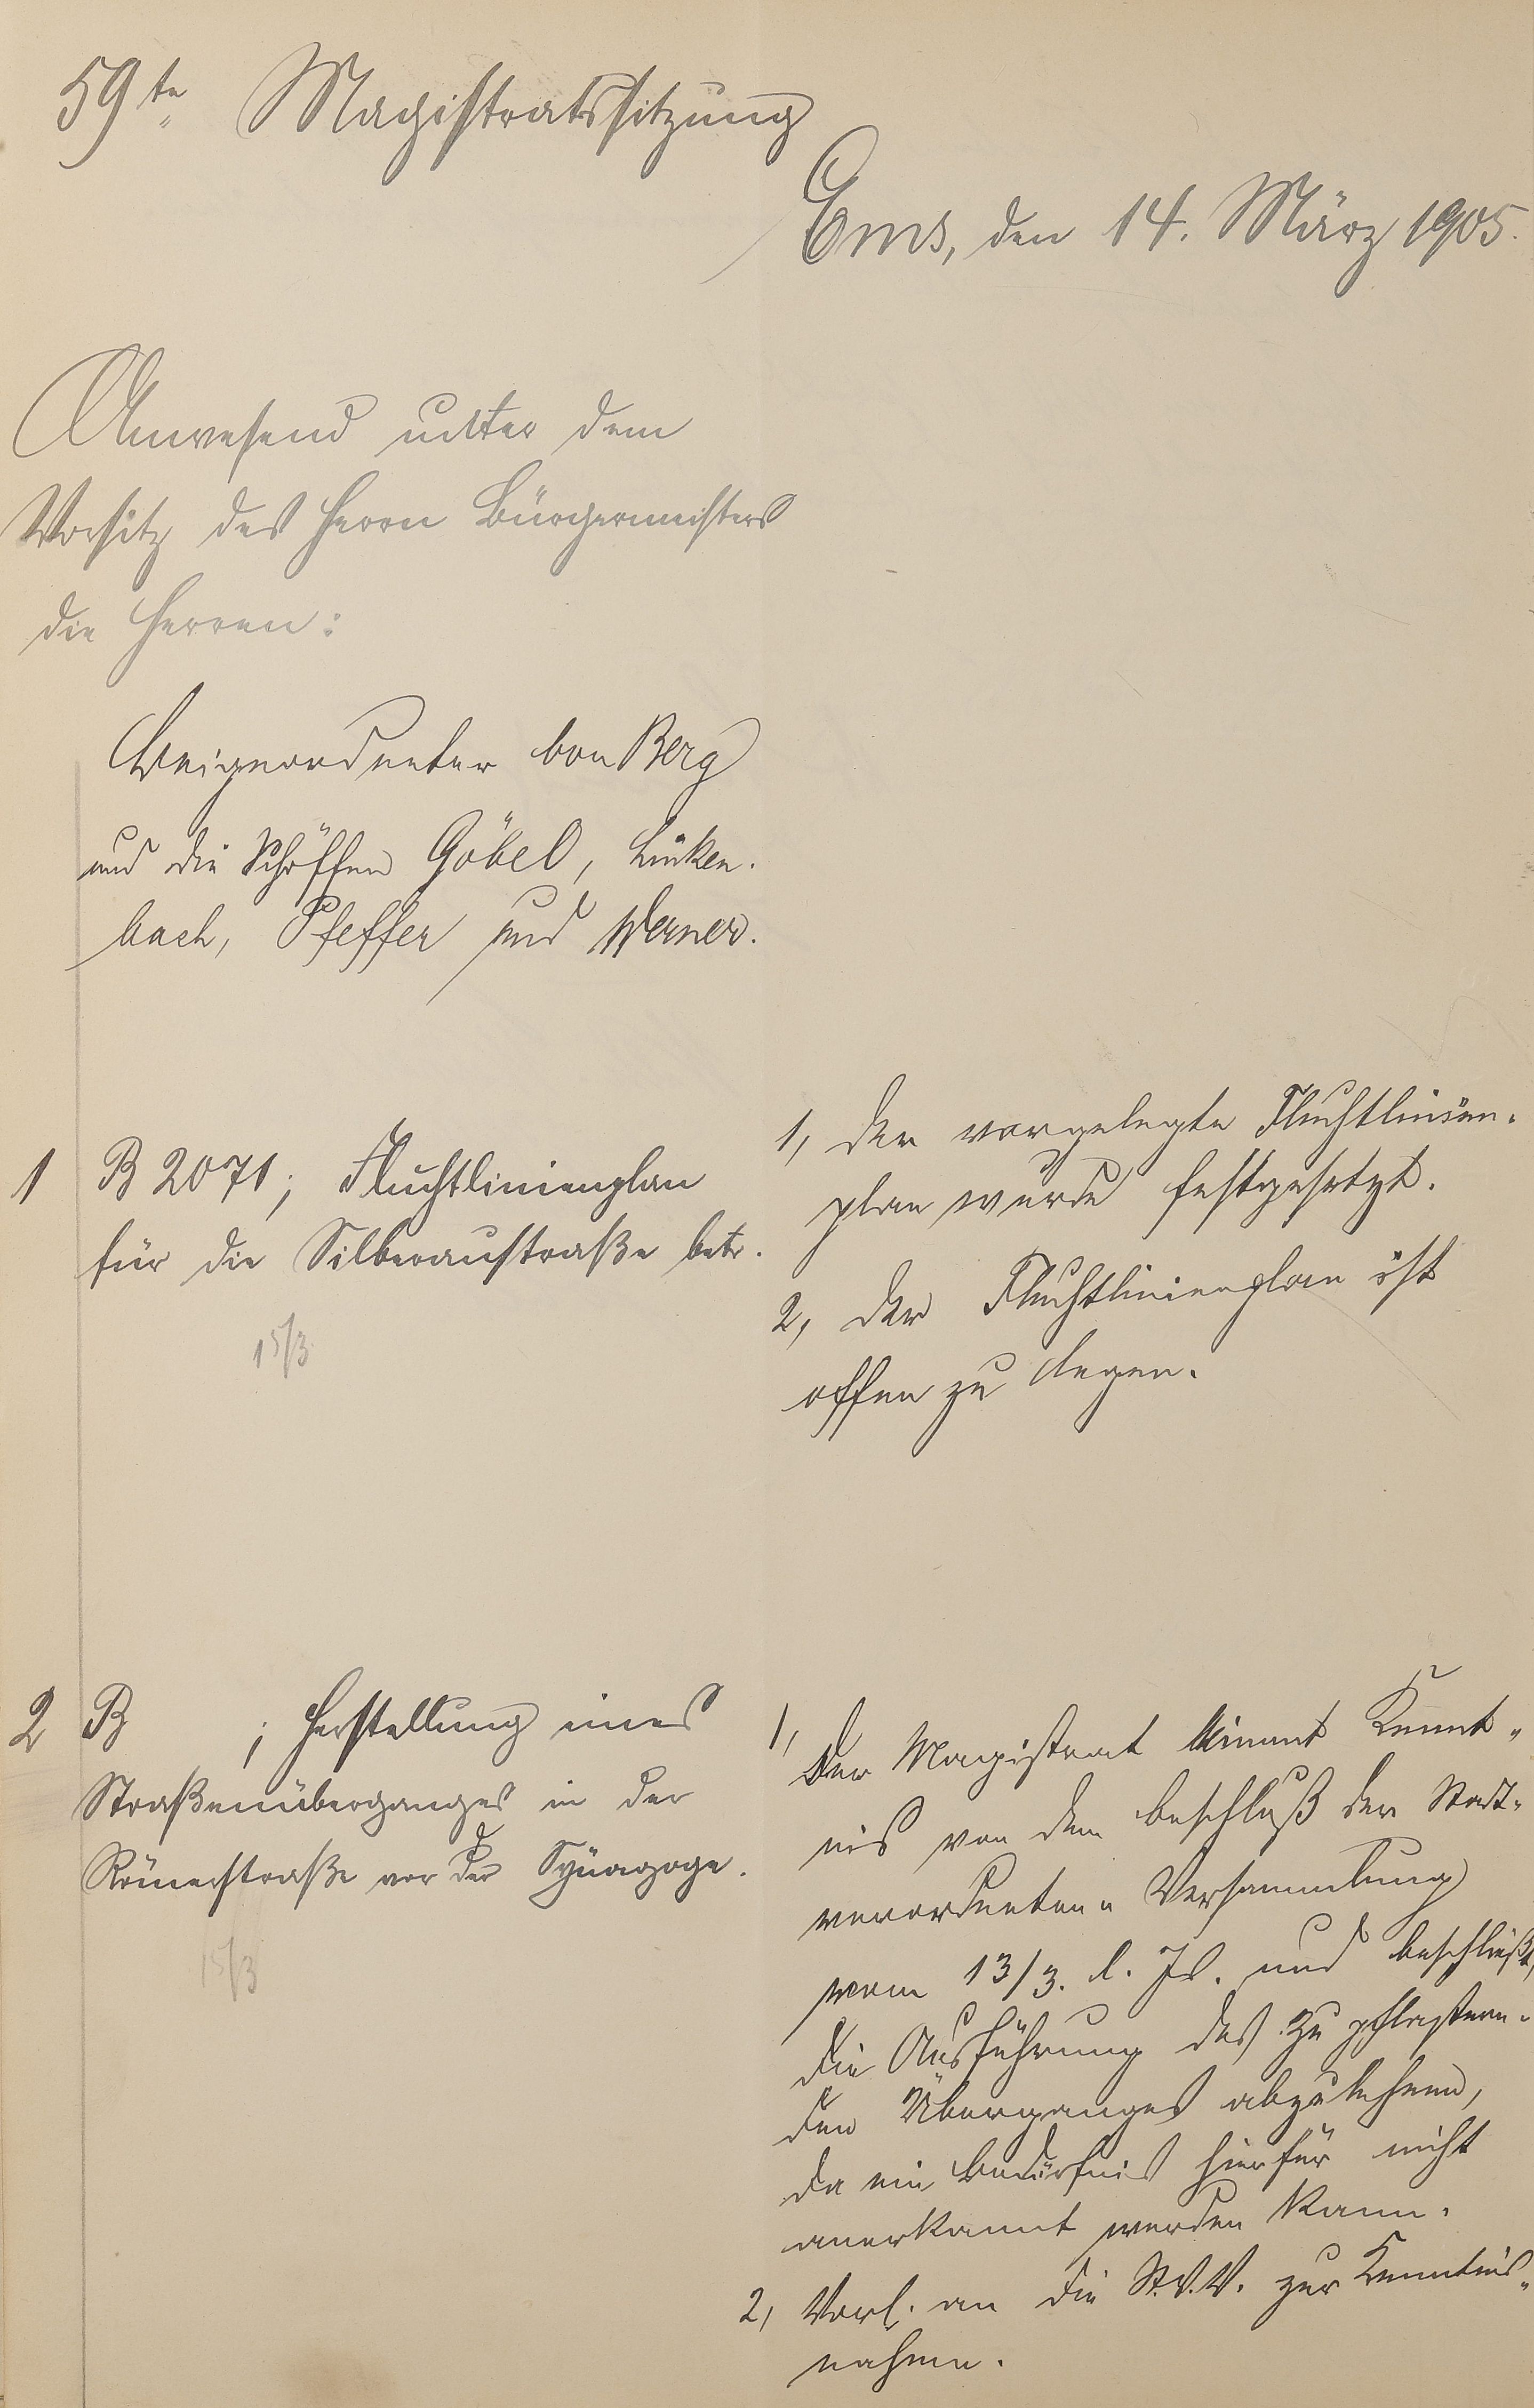 59te Magistratssitzung
Ems, den 14. März 1905.
Anwesend unter dem
Vorsitz des Herrn Bürgermeisters
die Herren:
Beigeordneter von Berg
und die Schöffen Göbel, Linken-
bach, Pfeffer und Werner.
1 B 2071; Fluchtlinienplan
für die Silberaustraße betr.
15/3
1, Der vorgelegte Fluchtlinien-
plan wurde festgesetzt.
2, Der Fluchtlinienplan ist
offen zu legen.
2 B ; Herstellung eines
Straßenüberganges in der
Römerstraße vor der Synagoge.
15/3
1, Der Magistrat nimmt Kennt-
nis von dem Beschluß der Stadt-
verordneten-Versammlung
vom 13/3. l. Js. und beschließt,
die Ausführung des zu pflastern-
den Überganges abzulehnen,
da ein Bedürfnis hierfür nicht
anerkannt werden kann.
2, Vorl. an die St.V.V. zur Kenntnis-
nahme.